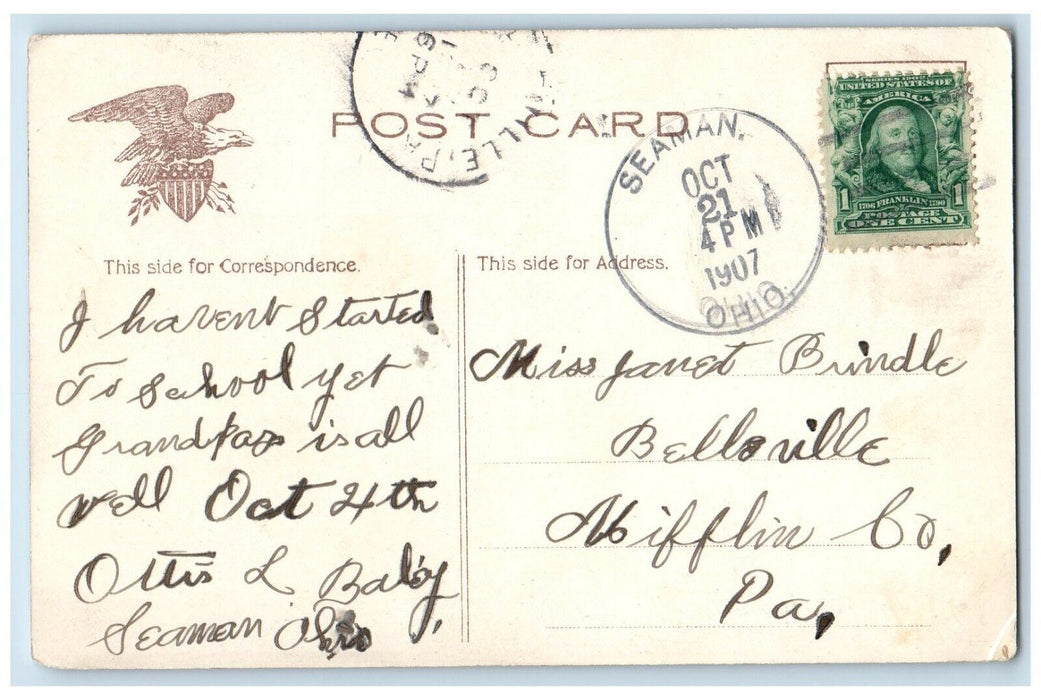 POST CARD
SEAMAN,
OCT
21
4 PM
1907
OHIO.
SERIES 1902
UNITED STATES OF
AMERICA
1 1706 FRANKLIN 1790 1
POSTAGE
ONE CENT
This side for Correspondence.
I havent started
To school yet
Grandpas is all
well Oct 4th
Ottis L
Seaman Ohio
This side for Address.
Miss Janet Brindle
Belleville
Mifflin Co,
Pa,